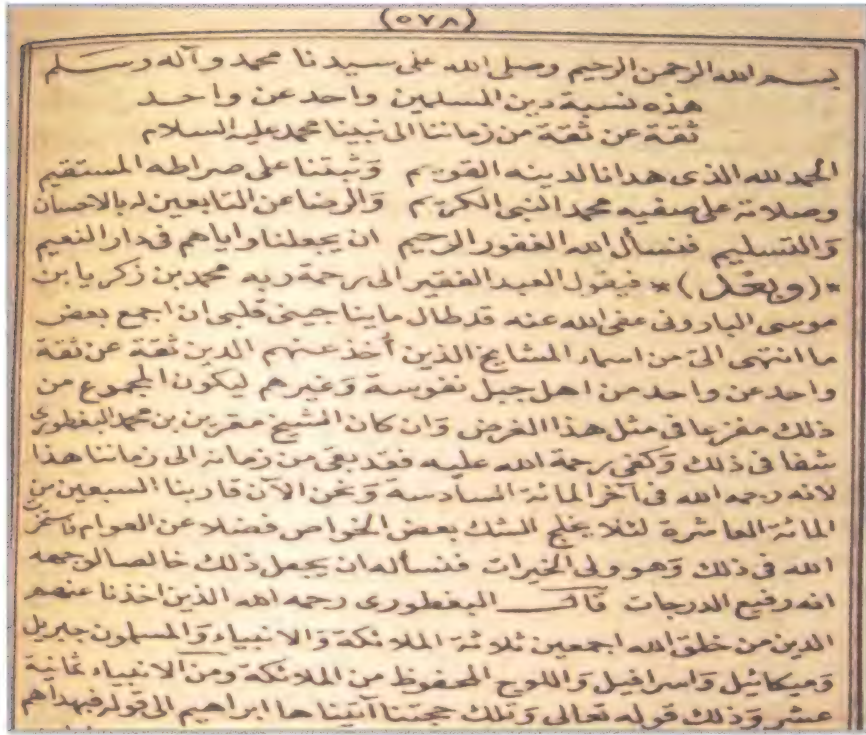 (٥٧٨)
بسم الله الرحمن الرحيم وصلى الله على سيدنا محمد وآله وسلم
هذه نسبة دين المسلمين واحد عن واحد
ثقة عن ثقة من زماننا الى نبينا محمد عليه السلام
الحمد لله الذى هدانا لدينه القويم وثبتنا على صراطه المستقيم
وصلاته على صفيه محمد النبى الكريم والرضا عن التابعين له بالاحسان
والتسليم فنسأل الله الغفور الرحيم ان يجعلنا واياهم فى دار النعيم
*(وبعد)* فيقول العبد الفقير الى رحمة ربه محمد بن زكريا بن
موسى البارونى عفى الله عنه قد طال ما يناجينى قلبى ان اجمع بعض
ما انتهى الىّ من اسماء المشايخ الذين أخذ عنهم الدين ثقة عن ثقة
واحد عن واحد من اهل جبل نفوسة وغيرهم ليكون المجموع من
ذلك مفزعا فى مثل هذا الغرض وان كان الشيخ مقرين بن محمد البغطورى
شفا فى ذلك وكفى رحمة الله عليه فقد بقى من زمانه الى زماننا هذا
لانه رحمه الله فى آخر المائة السادسة ونحن الآن قاربنا السبعين من
المائة العاشرة لئلا يخلج الشك بعض الخواص فضلا عن العوام فاستخرت
الله فى ذلك وهو ولى الخيرات فنسأله ان يجعل ذلك خالصا لوجهه
انه رفيع الدرجات قال البغطورى رحمه الله الذين اخذنا عنهم
الدين من خلق الله اجمعين ثلاثة الملائكة والانبياء والمسلمون جبريل
وميكائيل واسرافيل واللوح المحفوظ من الملائكة ومن الانبياء ثمانية
عشر وذلك قوله تعالى وتلك حجتنا آتيناها ابراهيم الى قوله فبهداهم